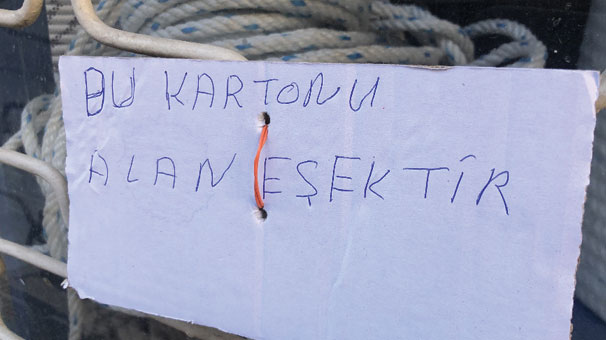 BU KARTONU
ALAN EŞEKTİR